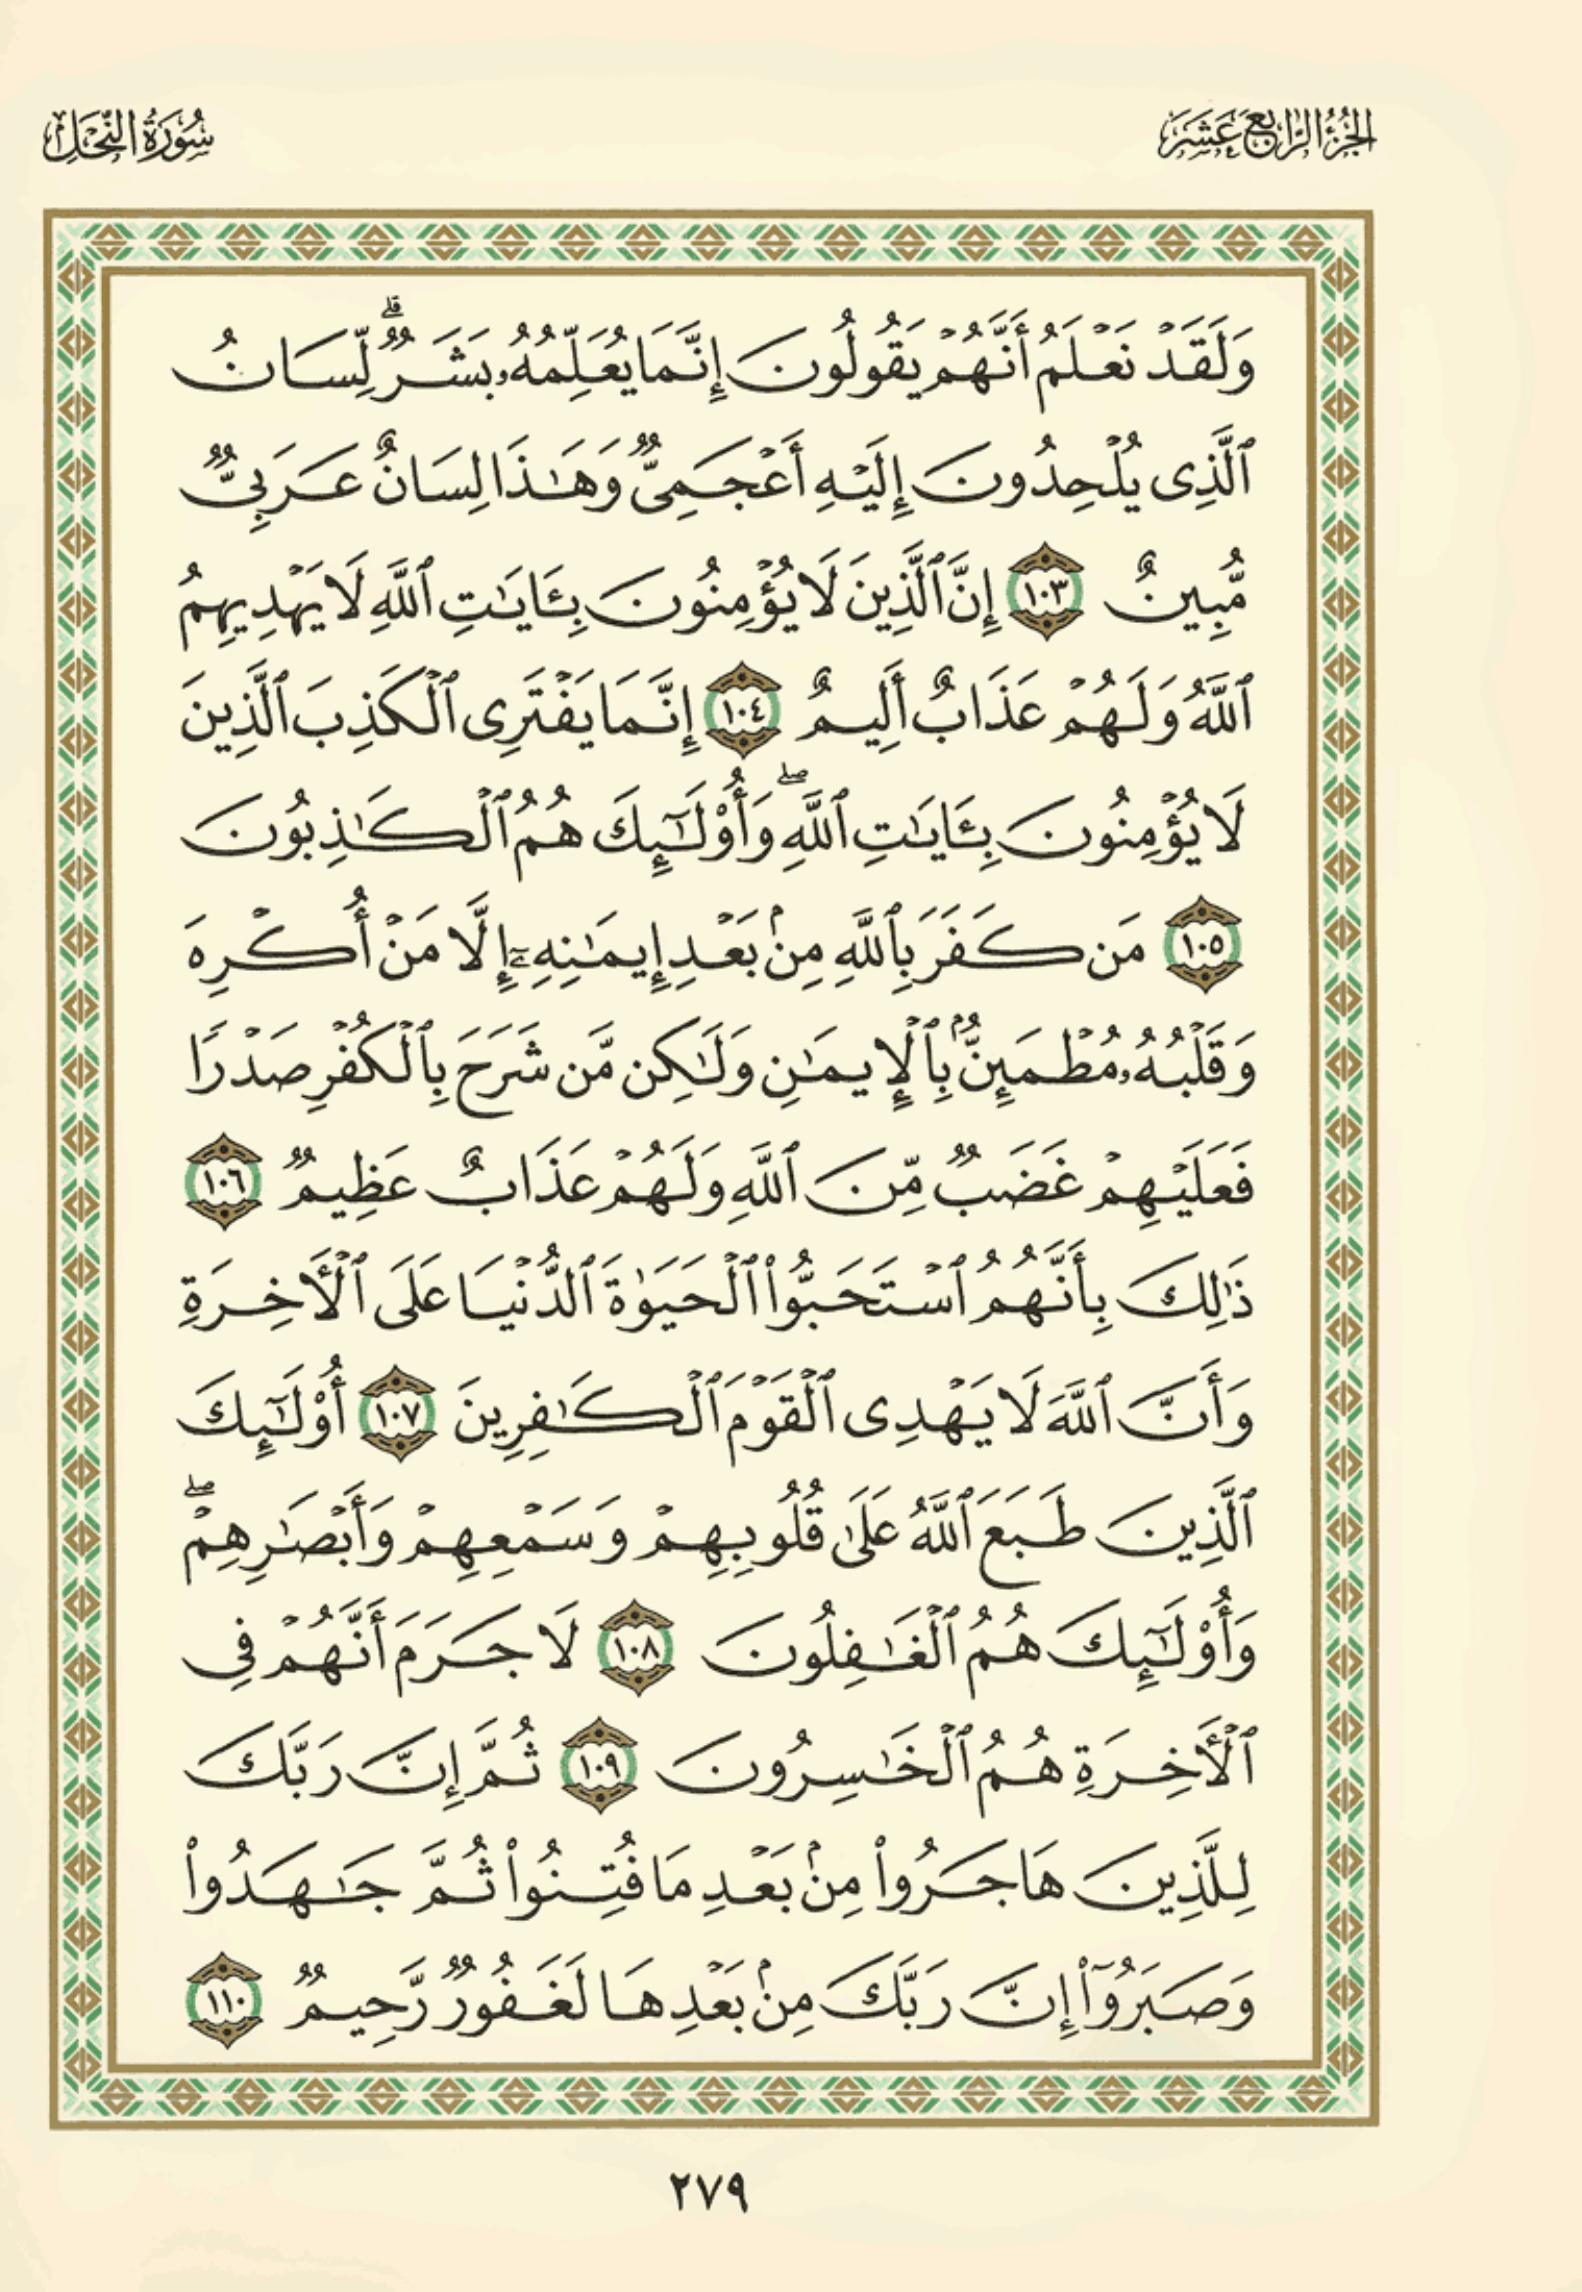 الجزء الرابع عشر
سورة النحل
وَلَقَدۡ نَعۡلَمُ أَنَّهُمۡ يَقُولُونَ إِنَّمَا يُعَلِّمُهُۥ بَشَرٞۗ لِّسَانُ
ٱلَّذِي يُلۡحِدُونَ إِلَيۡهِ أَعۡجَمِيّٞ وَهَٰذَا لِسَانٌ عَرَبِيّٞ
مُّبِينٌ ١٠٣ إِنَّ ٱلَّذِينَ لَا يُؤۡمِنُونَ بِـَٔايَٰتِ ٱللَّهِ لَا يَهۡدِيهِمُ
ٱللَّهُ وَلَهُمۡ عَذَابٌ أَلِيمٌ ١٠٤ إِنَّمَا يَفۡتَرِي ٱلۡكَذِبَ ٱلَّذِينَ
لَا يُؤۡمِنُونَ بِـَٔايَٰتِ ٱللَّهِۖ وَأُوْلَٰٓئِكَ هُمُ ٱلۡكَٰذِبُونَ
١٠٥ مَن كَفَرَ بِٱللَّهِ مِنۢ بَعۡدِ إِيمَٰنِهِۦٓ إِلَّا مَنۡ أُكۡرِهَ
وَقَلۡبُهُۥ مُطۡمَئِنُّۢ بِٱلۡإِيمَٰنِ وَلَٰكِن مَّن شَرَحَ بِٱلۡكُفۡرِ صَدۡرٗا
فَعَلَيۡهِمۡ غَضَبٞ مِّنَ ٱللَّهِ وَلَهُمۡ عَذَابٌ عَظِيمٞ ١٠٦
ذَٰلِكَ بِأَنَّهُمُ ٱسۡتَحَبُّواْ ٱلۡحَيَوٰةَ ٱلدُّنۡيَا عَلَى ٱلۡأٓخِرَةِ
وَأَنَّ ٱللَّهَ لَا يَهۡدِي ٱلۡقَوۡمَ ٱلۡكَٰفِرِينَ ١٠٧ أُوْلَٰٓئِكَ
ٱلَّذِينَ طَبَعَ ٱللَّهُ عَلَىٰ قُلُوبِهِمۡ وَسَمۡعِهِمۡ وَأَبۡصَٰرِهِمۡۖ
وَأُوْلَٰٓئِكَ هُمُ ٱلۡغَٰفِلُونَ ١٠٨ لَا جَرَمَ أَنَّهُمۡ فِي
ٱلۡأٓخِرَةِ هُمُ ٱلۡخَٰسِرُونَ ١٠٩ ثُمَّ إِنَّ رَبَّكَ
لِلَّذِينَ هَاجَرُواْ مِنۢ بَعۡدِ مَا فُتِنُواْ ثُمَّ جَٰهَدُواْ
وَصَبَرُوٓاْ إِنَّ رَبَّكَ مِنۢ بَعۡدِهَا لَغَفُورٞ رَّحِيمٞ ١١٠
٢٧٩